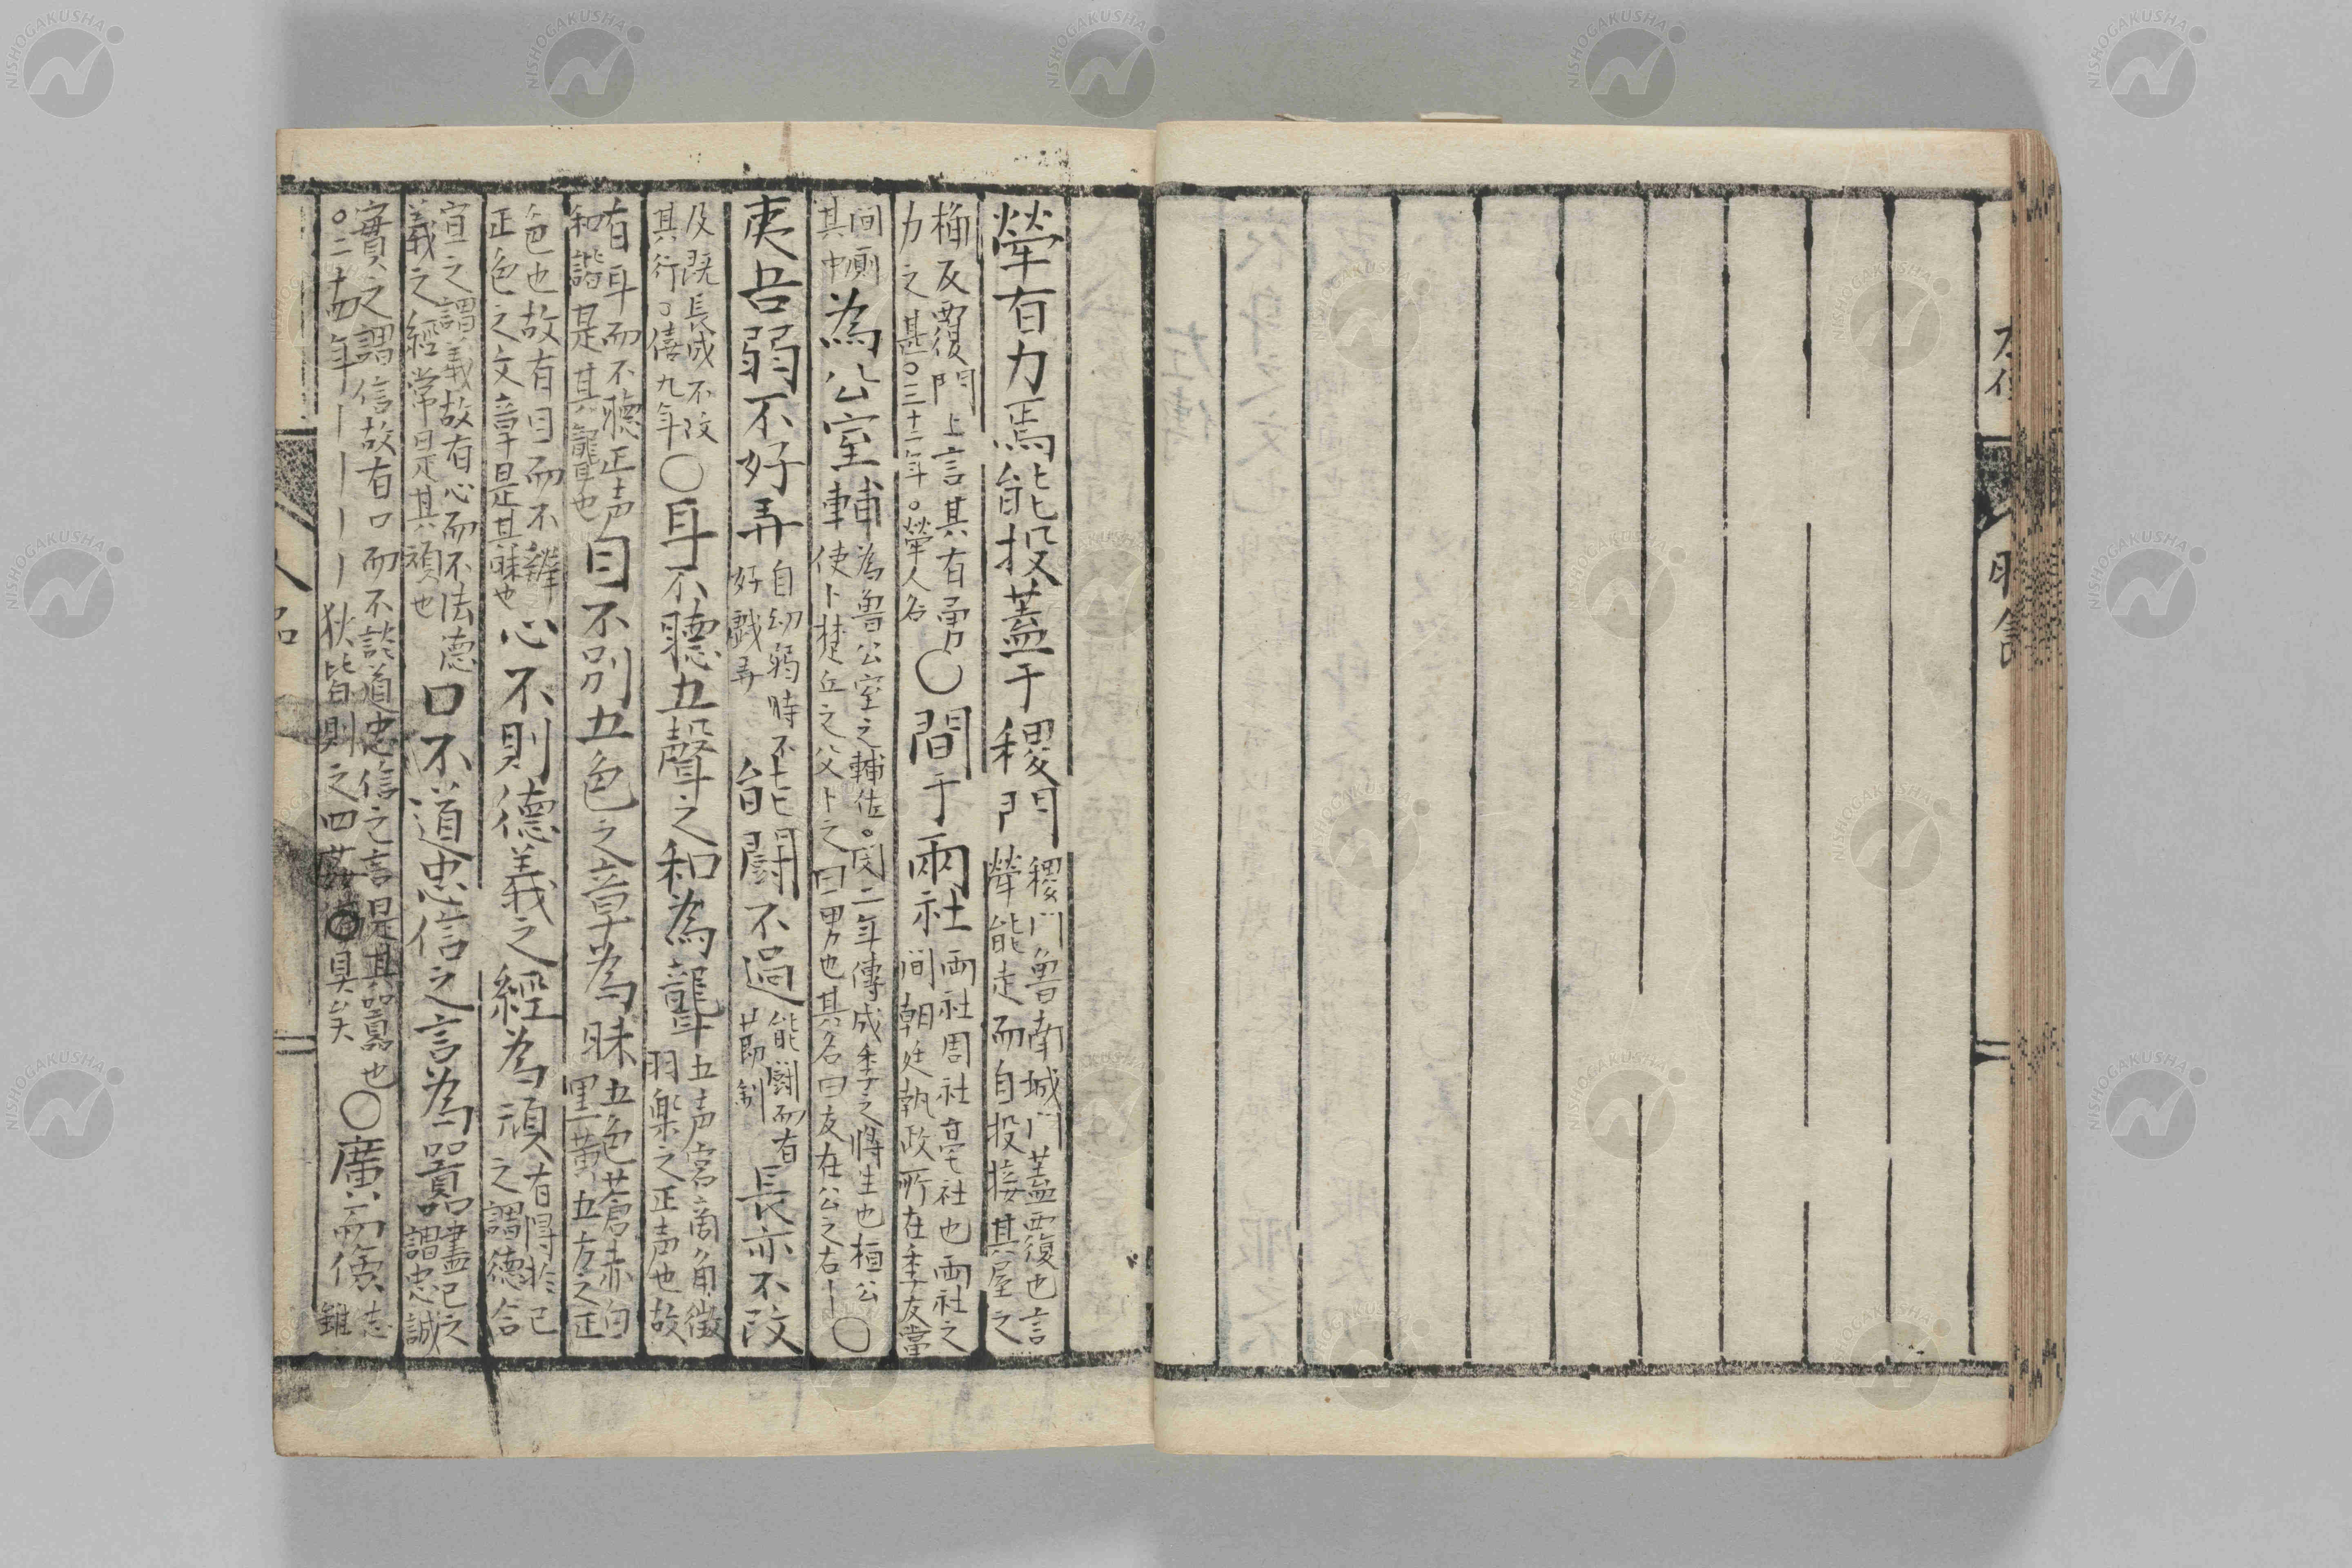 犖有力焉能投蓋于稷門
稷門魯南城門蓋覆也言
犖能走而自投接其屋之
桷反覆門上言其有勇
力之甚○三十二年○犖人名
○間于兩社
兩社周社亳社也兩社之
間朝廷執政所在季友當
間廁
其中
為公室輔
為魯公室之輔佐○閔二年傳成季之將生也桓公
使卜楚丘之父卜之曰男也其名曰友在公之右
○
夷吾弱不好弄
自幼弱時不
好戲弄
能鬪不過
能鬪而有
節制
長亦不改
及既長成不改
其行○僖九年
○耳不聽五聲之和為聾
五声宮商角徵
羽樂之正声也故
有耳而不聽正声
和諧是其聾也
目不別五色之章為昧
五色蒼赤白
黒黄五方之正
色也故有目而不辨
正色之文章是其昧也
心不則德義之經為頑
有得於己
之謂德合
宜之謂義故有心而不法德
義之經常是其頑也
口不道忠信之言為嚚
盡己之
謂忠誠
實之謂信故有口而不談道忠信之言是其嚚也
○二十四年
狄皆則之四姦具矣
○廣而儉
志
雖
NISHOGAKUSHA